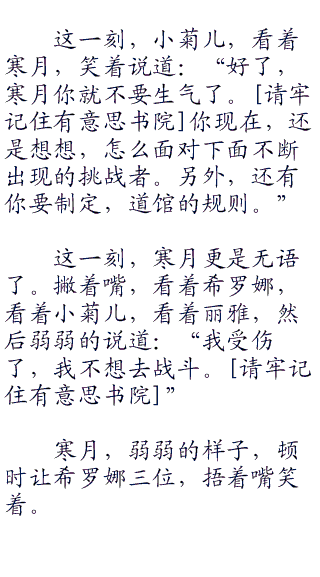 这一刻，小菊儿，看着
寒月，笑着说道：“好了，
寒月你就不要生气了。[请牢
记住有意思书院]你现在，还
是想想，怎么面对下面不断
出现的挑战者。另外，还有
你要制定，道馆的规则。”
这一刻，寒月更是无语
了。撇着嘴，看着希罗娜，
看着小菊儿，看着丽雅，然
后弱弱的说道：“我受伤
了，我不想去战斗。[请牢记
住有意思书院]”
寒月，弱弱的样子，顿
时让希罗娜三位，捂着嘴笑
着。